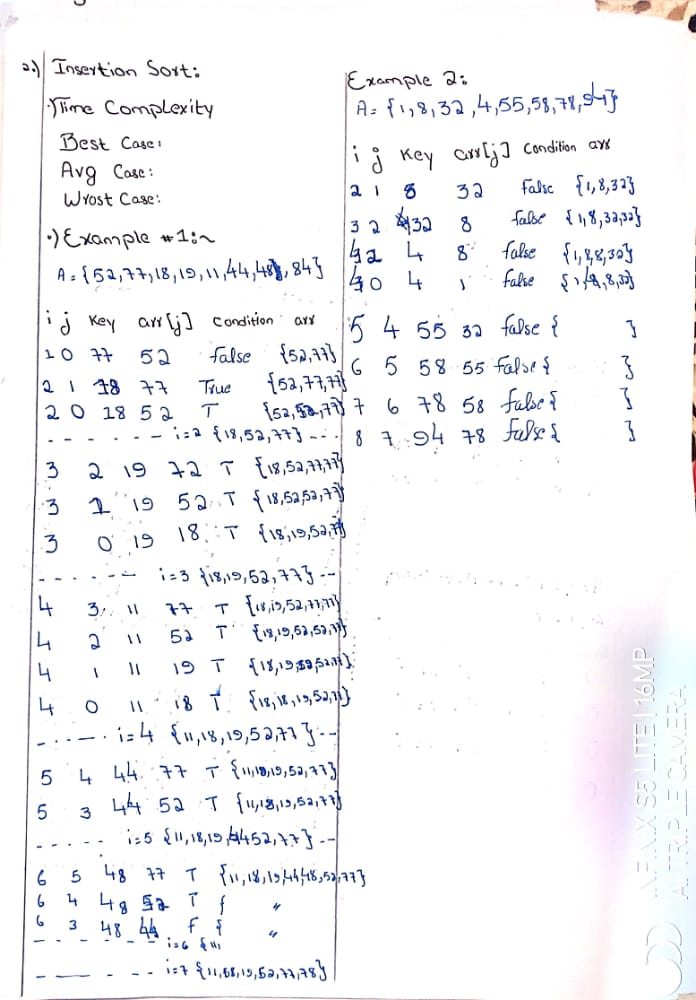 2.) Insertion Sort:
.) Time Complexity
Best Case:
Avg Case:
Wrost Case:
.) Example #1:~
A = {52,77,18,19,11,44,48,84}
i j Key arr[j] Condition arr
1 0 77 52 False {52,77}
2 1 18 77 True {52,77,77}
2 0 18 52 T {52,52,77}
------- i=2 {18,52,77}---
3 2 19 72 T {18,52,77,77}
3 1 19 52 T {18,52,52,77}
3 0 19 18 T {18,19,52,77}
------ i=3 {18,19,52,77}--
4 3 11 77 T {18,19,52,77,77}
4 2 11 52 T {18,19,52,52,77}
4 1 11 19 T {18,19,52,77}
4 0 11 18 T {18,18,19,52,77}
----- i=4 {11,18,19,52,77}---
5 4 44 77 T {11,18,19,52,77}
5 3 44 52 T {11,18,19,52,77}
----- i=5 {11,18,19,4452,77}--
6 5 48 77 T {11,18,19,44,48,52,77}
6 4 48 52 T { "
6 3 48 44 F { "
------- i=6 { "
------ i=7 {11,68,19,52,77,78}
Example 2:
A = {1,8,32,4,55,58,78,94}
i j Key arr[j] Condition arr
2 1 8 32 False {1,8,32}
3 2 32 8 false {1,8,32,32}
4 2 4 8 false {1,8,8,32}
4 0 4 1 false {1,4,8,32}
5 4 55 32 false { }
6 5 58 55 False { }
7 6 78 58 false { }
8 7 94 78 False { }
INFINIX S5 LITE | 16MP
AI TRIPLE CAMERA